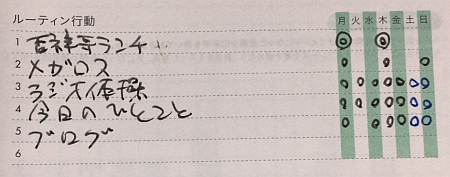 ルーティン行動 月 火 水 木 金 土 日
1 百神等ランチ
2 メガロス
3 ラジオ体操
4 今日のひとこと
5 ブログ
6